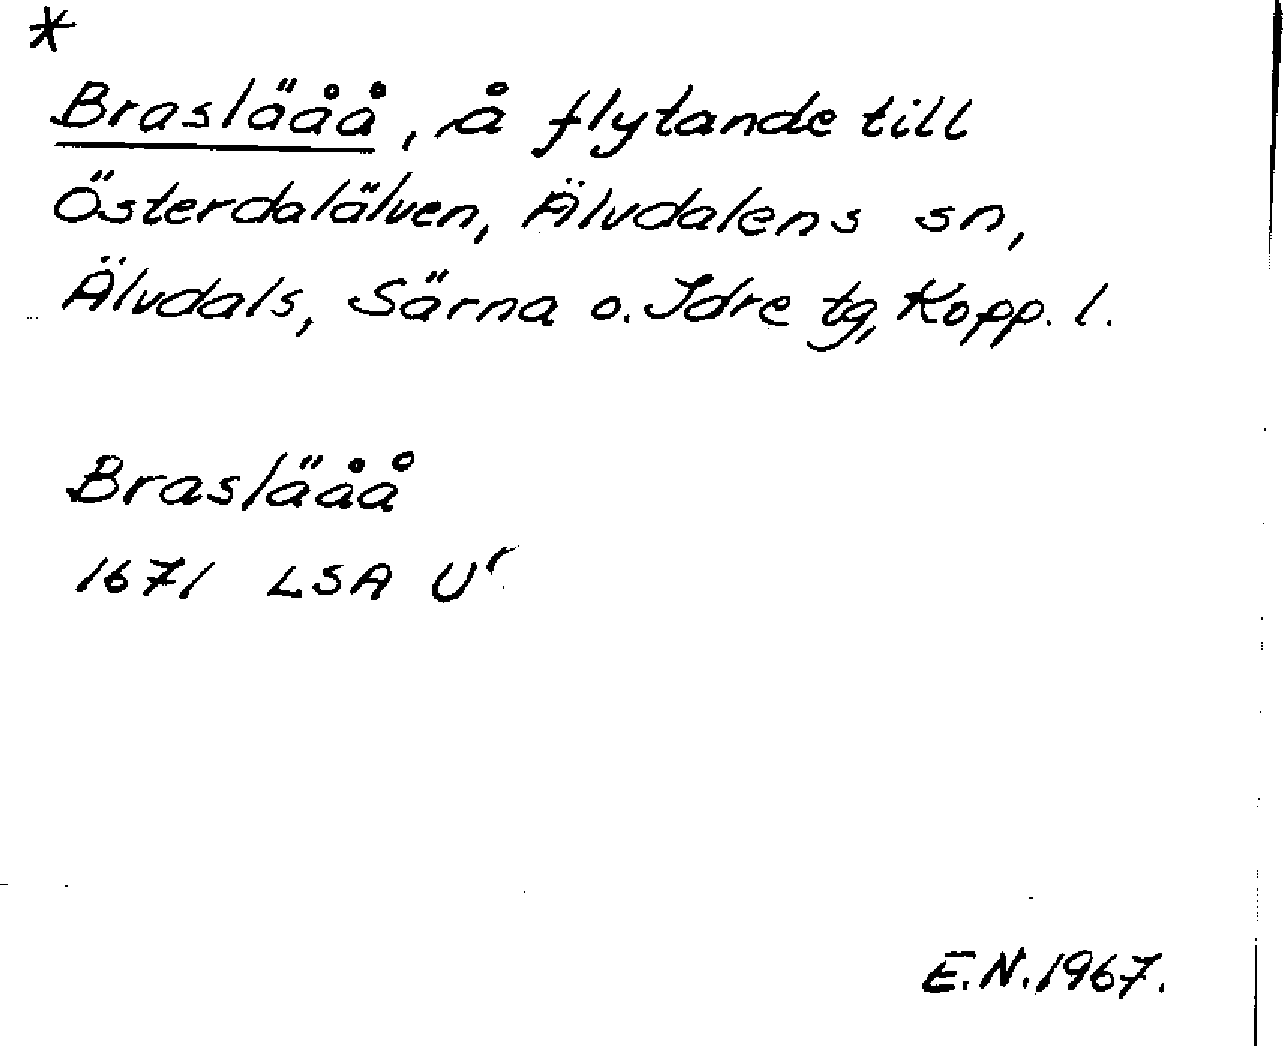 *
Brasläåå, å flytande till
Österdalälven, Älvdalens sn,
Älvdals, Särna o. Idre tg, Kopp. l.
Brasläåå
1671 LSA U^r
E.N. 1967.